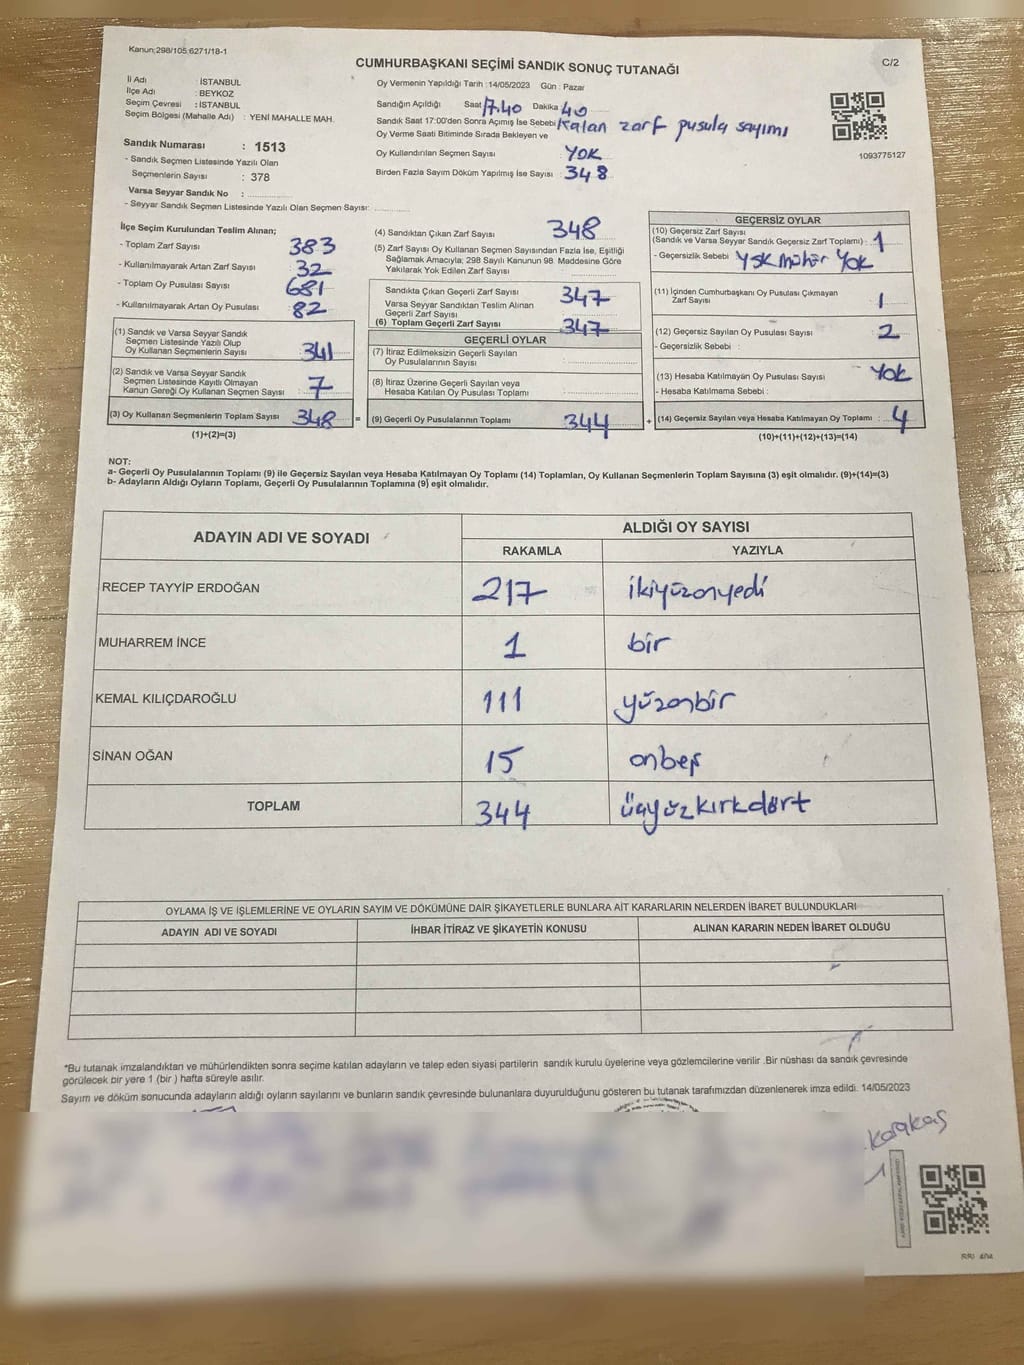 Kanun:298/105.6271/18-1
CUMHURBAŞKANI SEÇİMİ SANDIK SONUÇ TUTANAĞI
C/2
İl Adı : İSTANBUL
İlçe Adı : BEYKOZ
Seçim Çevresi : İSTANBUL
Seçim Bölgesi (Mahalle Adı) : YENİ MAHALLE MAH.
Sandık Numarası : 1513
- Sandık Seçmen Listesinde Yazılı Olan
Seçmenlerin Sayısı : 378
Varsa Seyyar Sandık No :
- Seyyar Sandık Seçmen Listesinde Yazılı Olan Seçmen Sayısı:
Oy Vermenin Yapıldığı Tarih :14/05/2023 Gün : Pazar
Sandığın Açıldığı Saat 17.40 Dakika 40
Sandık Saat 17:00'den Sonra Açımış İse Sebebi Kalan zarf pusula sayımı
Oy Verme Saati Bitiminde Sırada Bekleyen ve
Oy Kullandırılan Seçmen Sayısı YOK
Birden Fazla Sayım Döküm Yapılmış İse Sayısı : 348
1093775127
İlçe Seçim Kurulundan Teslim Alınan;
- Toplam Zarf Sayısı 383
- Kullanılmayarak Artan Zarf Sayısı 32
- Toplam Oy Pusulası Sayısı 681
- Kullanılmayarak Artan Oy Pusulası 82
(1) Sandık ve Varsa Seyyar Sandık
Seçmen Listesinde Yazılı Olup
Oy Kullanan Seçmenlerin Sayısı : 341
(2) Sandık ve Varsa Seyyar Sandık
Seçmen Listesinde Kayıtlı Olmayan
Kanun Gereği Oy Kullanan Seçmen Sayısı : 7
(3) Oy Kullanan Seçmenlerin Toplam Sayısı 348 =
(1)+(2)=(3)
(4) Sandıktan Çıkan Zarf Sayısı 348
(5) Zarf Sayısı Oy Kullanan Seçmen Sayısından Fazla İse, Eşitliği
Sağlamak Amacıyla; 298 Sayılı Kanunun 98. Maddesine Göre
Yakılarak Yok Edilen Zarf Sayısı
Sandıkta Çıkan Geçerli Zarf Sayısı 347
Varsa Seyyar Sandıktan Teslim Alınan
Geçerli Zarf Sayısı
(6) Toplam Geçerli Zarf Sayısı 347
GEÇERLİ OYLAR
(7) İtiraz Edilmeksizin Geçerli Sayılan
Oy Pusulalarının Sayısı
(8) İtiraz Üzerine Geçerli Sayılan veya
Hesaba Katılan Oy Pusulası Toplamı
(9) Geçerli Oy Pusulalarının Toplamı 344 +
GEÇERSİZ OYLAR
(10) Geçersiz Zarf Sayısı
(Sandık ve Varsa Seyyar Sandık Geçersiz Zarf Toplamı) : 1
- Geçersizlik Sebebi : YSK mühür Yok
(11) İçinden Cumhurbaşkanı Oy Pusulası Çıkmayan
Zarf Sayısı 1
(12) Geçersiz Sayılan Oy Pusulası Sayısı 2
- Geçersizlik Sebebi :
(13) Hesaba Katılmayan Oy Pusulası Sayısı YOK
- Hesaba Katılmama Sebebi :
(14) Geçersiz Sayılan veya Hesaba Katılmayan Oy Toplamı : 4
(10)+(11)+(12)+(13)=(14)
NOT:
a- Geçerli Oy Pusulalarının Toplamı (9) ile Geçersiz Sayılan veya Hesaba Katılmayan Oy Toplamı (14) Toplamları, Oy Kullanan Seçmenlerin Toplam Sayısına (3) eşit olmalıdır. (9)+(14)=(3)
b- Adayların Aldığı Oyların Toplamı, Geçerli Oy Pusulalarının Toplamına (9) eşit olmalıdır.
ADAYIN ADI VE SOYADI
ALDIĞI OY SAYISI
RAKAMLA YAZIYLA
RECEP TAYYİP ERDOĞAN 217 ikiyüzonyedi
MUHARREM İNCE 1 bir
KEMAL KILIÇDAROĞLU 111 yüzonbir
SİNAN OĞAN 15 onbeş
TOPLAM 344 üçyüzkırkdört
OYLAMA İŞ VE İŞLEMLERİNE VE OYLARIN SAYIM VE DÖKÜMÜNE DAİR ŞİKAYETLERLE BUNLARA AİT KARARLARIN NELERDEN İBARET BULUNDUKLARI
ADAYIN ADI VE SOYADI İHBAR İTİRAZ VE ŞİKAYETİN KONUSU ALINAN KARARIN NEDEN İBARET OLDUĞU
*Bu tutanak imzalandıktan ve mühürlendikten sonra seçime katılan adayların ve talep eden siyasi partilerin sandık kurulu üyelerine veya gözlemcilerine verilir .Bir nüshası da sandık çevresinde
görülecek bir yere 1 (bir ) hafta süreyle asılır.
Sayım ve döküm sonucunda adayların aldığı oyların sayılarını ve bunların sandık çevresinde bulunanlara duyurulduğunu gösteren bu tutanak tarafımızdan düzenlenerek imza edildi. 14/05/2023
Karakaş